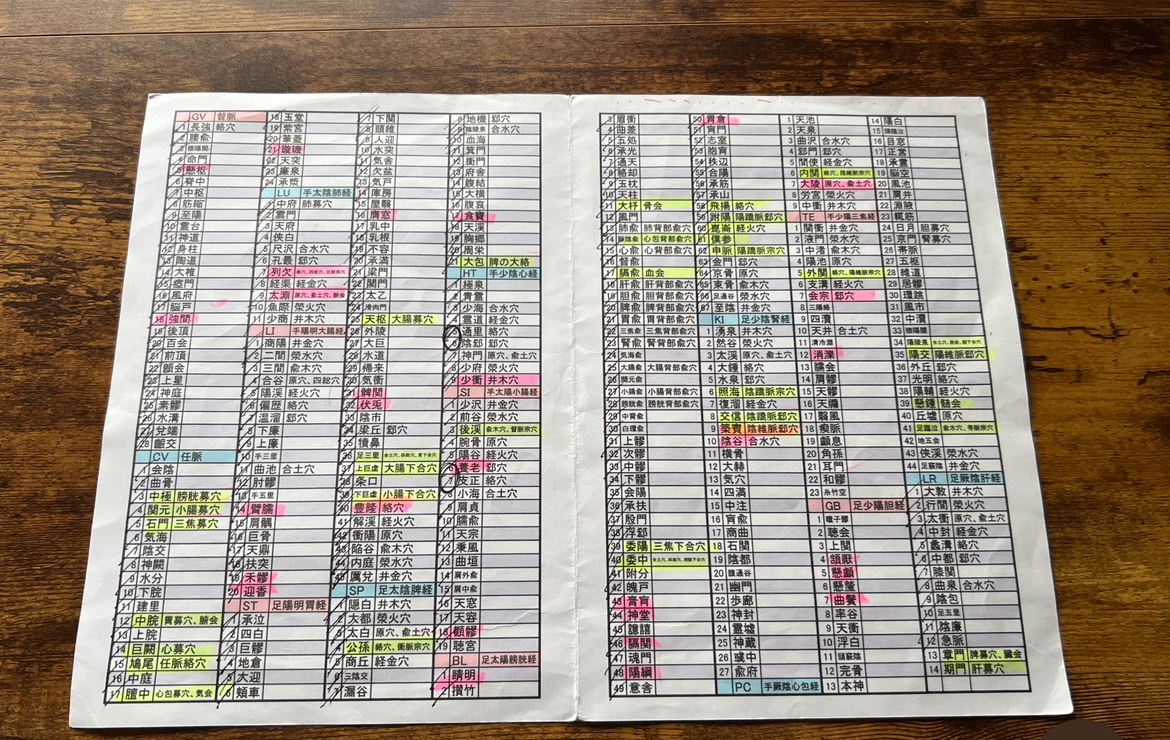 GV 督脈
1 長強 絡穴
2 腰兪
3 腰陽関
4 命門
5 懸枢
6 脊中
7 中枢
8 筋縮
9 至陽
10 霊台
11 神道
12 身柱
13 陶道
14 大椎
15 瘂門
16 風府
17 脳戸
18 強間
19 後頂
20 百会
21 前頂
22 顖会
23 上星
24 神庭
25 素髎
26 水溝
27 兌端
28 齦交
CV 任脈
1 会陰
2 曲骨
3 中極 膀胱募穴
4 関元 小腸募穴
5 石門 三焦募穴
6 気海
7 陰交
8 神闕
9 水分
10 下脘
11 建里
12 中脘 胃募穴、腑会
13 上脘
14 巨闕 心募穴
15 鳩尾 任脈絡穴
16 中庭
17 膻中 心包募穴、気会
18 玉堂
19 紫宮
20 華蓋
21 璇璣
22 天突
23 廉泉
24 承漿
LU 手太陰肺経
1 中府 肺募穴
2 雲門
3 天府
4 侠白
5 尺沢 合水穴
6 孔最 郄穴
7 列欠 絡穴、四総穴、任脈宗穴
8 経渠 経金穴
9 太淵 原穴、兪土穴、脈会
10 魚際 滎火穴
11 少商 井木穴
LI 手陽明大腸経
1 商陽 井金穴
2 二間 滎水穴
3 三間 兪木穴
4 合谷 原穴、四総穴
5 陽渓 経火穴
6 偏歴 絡穴
7 温溜 郄穴
8 下廉
9 上廉
10 手三里
11 曲池 合土穴
12 肘髎
13 手五里
14 臂臑
15 肩髃
16 巨骨
17 天鼎
18 扶突
19 禾髎
20 迎香
ST 足陽明胃経
1 承泣
2 四白
3 巨髎
4 地倉
5 大迎
6 頬車
7 下関
8 頭維
9 人迎
10 水突
11 気舎
12 欠盆
13 気戸
14 庫房
15 屋翳
16 膺窓
17 乳中
18 乳根
19 不容
20 承満
21 梁門
22 関門
23 太乙
24 滑肉門
25 天枢 大腸募穴
26 外陵
27 大巨
28 水道
29 帰来
30 気衝
31 髀関
32 伏兎
33 陰市
34 梁丘 郄穴
35 犢鼻
36 足三里 合土穴、四総穴、胃下合穴
37 上巨虚 大腸下合穴
38 条口
39 下巨虚 小腸下合穴
40 豊隆 絡穴
41 解渓 経火穴
42 衝陽 原穴
43 陥谷 兪木穴
44 内庭 滎水穴
45 厲兌 井金穴
SP 足太陰脾経
1 隠白 井木穴
2 大都 滎火穴
3 太白 原穴、兪土穴
4 公孫 絡穴、衝脈宗穴
5 商丘 経金穴
6 三陰交
7 漏谷
8 地機 郄穴
9 陰陵泉 合水穴
10 血海
11 箕門
12 衝門
13 府舎
14 腹結
15 大横
16 腹哀
17 食竇
18 天渓
19 胸郷
20 周栄
21 大包 脾の大絡
HT 手少陰心経
1 極泉
2 青霊
3 少海 合水穴
4 霊道 経金穴
5 通里 絡穴
6 陰郄 郄穴
7 神門 原穴、兪土穴
8 少府 滎火穴
9 少衝 井木穴
SI 手太陽小腸経
1 少沢 井金穴
2 前谷 滎水穴
3 後渓 兪木穴、督脈宗穴
4 腕骨 原穴
5 陽谷 経火穴
6 養老 郄穴
7 支正 絡穴
8 小海 合土穴
9 肩貞
10 臑兪
11 天宗
12 秉風
13 曲垣
14 肩外兪
15 肩中兪
16 天窓
17 天容
18 顴髎
19 聴宮
BL 足太陽膀胱経
1 晴明
2 攅竹
3 眉衝
4 曲差
5 五処
6 承光
7 通天
8 絡却
9 玉枕
10 天柱
11 大杼 骨会
12 風門
13 肺兪 肺背部兪穴
14 厥陰兪 心包背部兪穴
15 心兪 心背部兪穴
16 督兪
17 膈兪 血会
18 肝兪 肝背部兪穴
19 胆兪 胆背部兪穴
20 脾兪 脾背部兪穴
21 胃兪 胃背部兪穴
22 三焦兪 三焦背部兪穴
23 腎兪 腎背部兪穴
24 気海兪
25 大腸兪 大腸背部兪穴
26 関元兪
27 小腸兪 小腸背部兪穴
28 膀胱兪 膀胱背部兪穴
29 中膂兪
30 白環兪
31 上髎
32 次髎
33 中髎
34 下髎
35 会陽
36 承扶
37 殷門
38 浮郄
39 委陽 三焦下合穴
40 委中 合土穴、四総穴、膀胱下合穴
41 附分
42 魄戸
43 膏肓
44 神堂
45 譩譆
46 膈関
47 魂門
48 陽綱
49 意舎
50 胃倉
51 肓門
52 志室
53 胞肓
54 秩辺
55 合陽
56 承筋
57 承山
58 飛揚 絡穴
59 跗陽 陽蹻脈郄穴
60 崑崙 経火穴
61 僕参
62 申脈 陽蹻脈宗穴
63 金門 郄穴
64 京骨 原穴
65 束骨 兪木穴
66 足通谷 滎水穴
67 至陰 井金穴
KI 足少陰腎経
1 湧泉 井木穴
2 然谷 滎火穴
3 太渓 原穴、兪土穴
4 大鍾 絡穴
5 水泉 郄穴
6 照海 陰蹻脈宗穴
7 復溜 経金穴
8 交信 陰蹻脈郄穴
9 築賓 陰維脈郄穴
10 陰谷 合水穴
11 横骨
12 大赫
13 気穴
14 四満
15 中注
16 肓兪
17 商曲
18 石関
19 陰都
20 腹通谷
21 幽門
22 歩廊
23 神封
24 霊墟
25 神蔵
26 彧中
27 兪府
PC 手厥陰心包経
1 天池
2 天泉
3 曲沢 合水穴
4 郄門 郄穴
5 間使 経金穴
6 内関 絡穴、陰維脈宗穴
7 大陵 原穴、兪土穴
8 労宮 滎火穴
9 中衝 井木穴
TE 手少陽三焦経
1 関衝 井金穴
2 液門 滎水穴
3 中渚 兪木穴
4 陽池 原穴
5 外関 絡穴、陽維脈宗穴
6 支溝 経火穴
7 会宗 郄穴
8 三陽絡
9 四瀆
10 天井 合土穴
11 清冷淵
12 消濼
13 臑会
14 肩髎
15 天髎
16 天牖
17 翳風
18 瘈脈
19 顱息
20 角孫
21 耳門
22 和髎
23 糸竹空
GB 足少陽胆経
1 瞳子髎
2 聴会
3 上関
4 頷厭
5 懸顱
6 懸釐
7 曲鬢
8 率谷
9 天衝
10 浮白
11 頭竅陰
12 完骨
13 本神
14 陽白
15 頭臨泣
16 目窓
17 正営
18 承霊
19 脳空
20 風池
21 肩井
22 淵腋
23 輒筋
24 日月 胆募穴
25 京門 腎募穴
26 帯脈
27 五枢
28 維道
29 居髎
30 環跳
31 風市
32 中瀆
33 膝陽関
34 陽陵泉 合土穴、筋会、胆下合穴
35 陽交 陽維脈郄穴
36 外丘 郄穴
37 光明 絡穴
38 陽輔 経火穴
39 懸鍾 髄会
40 丘墟 原穴
41 足臨泣 兪木穴、帯脈宗穴
42 地五会
43 侠渓 滎水穴
44 足竅陰 井金穴
LR 足厥陰肝経
1 大敦 井木穴
2 行間 滎火穴
3 太衝 原穴、兪土穴
4 中封 経金穴
5 蠡溝 絡穴
6 中都 郄穴
7 膝関
8 曲泉 合水穴
9 陰包
10 足五里
11 陰廉
12 急脈
13 章門 脾募穴、臓会
14 期門 肝募穴